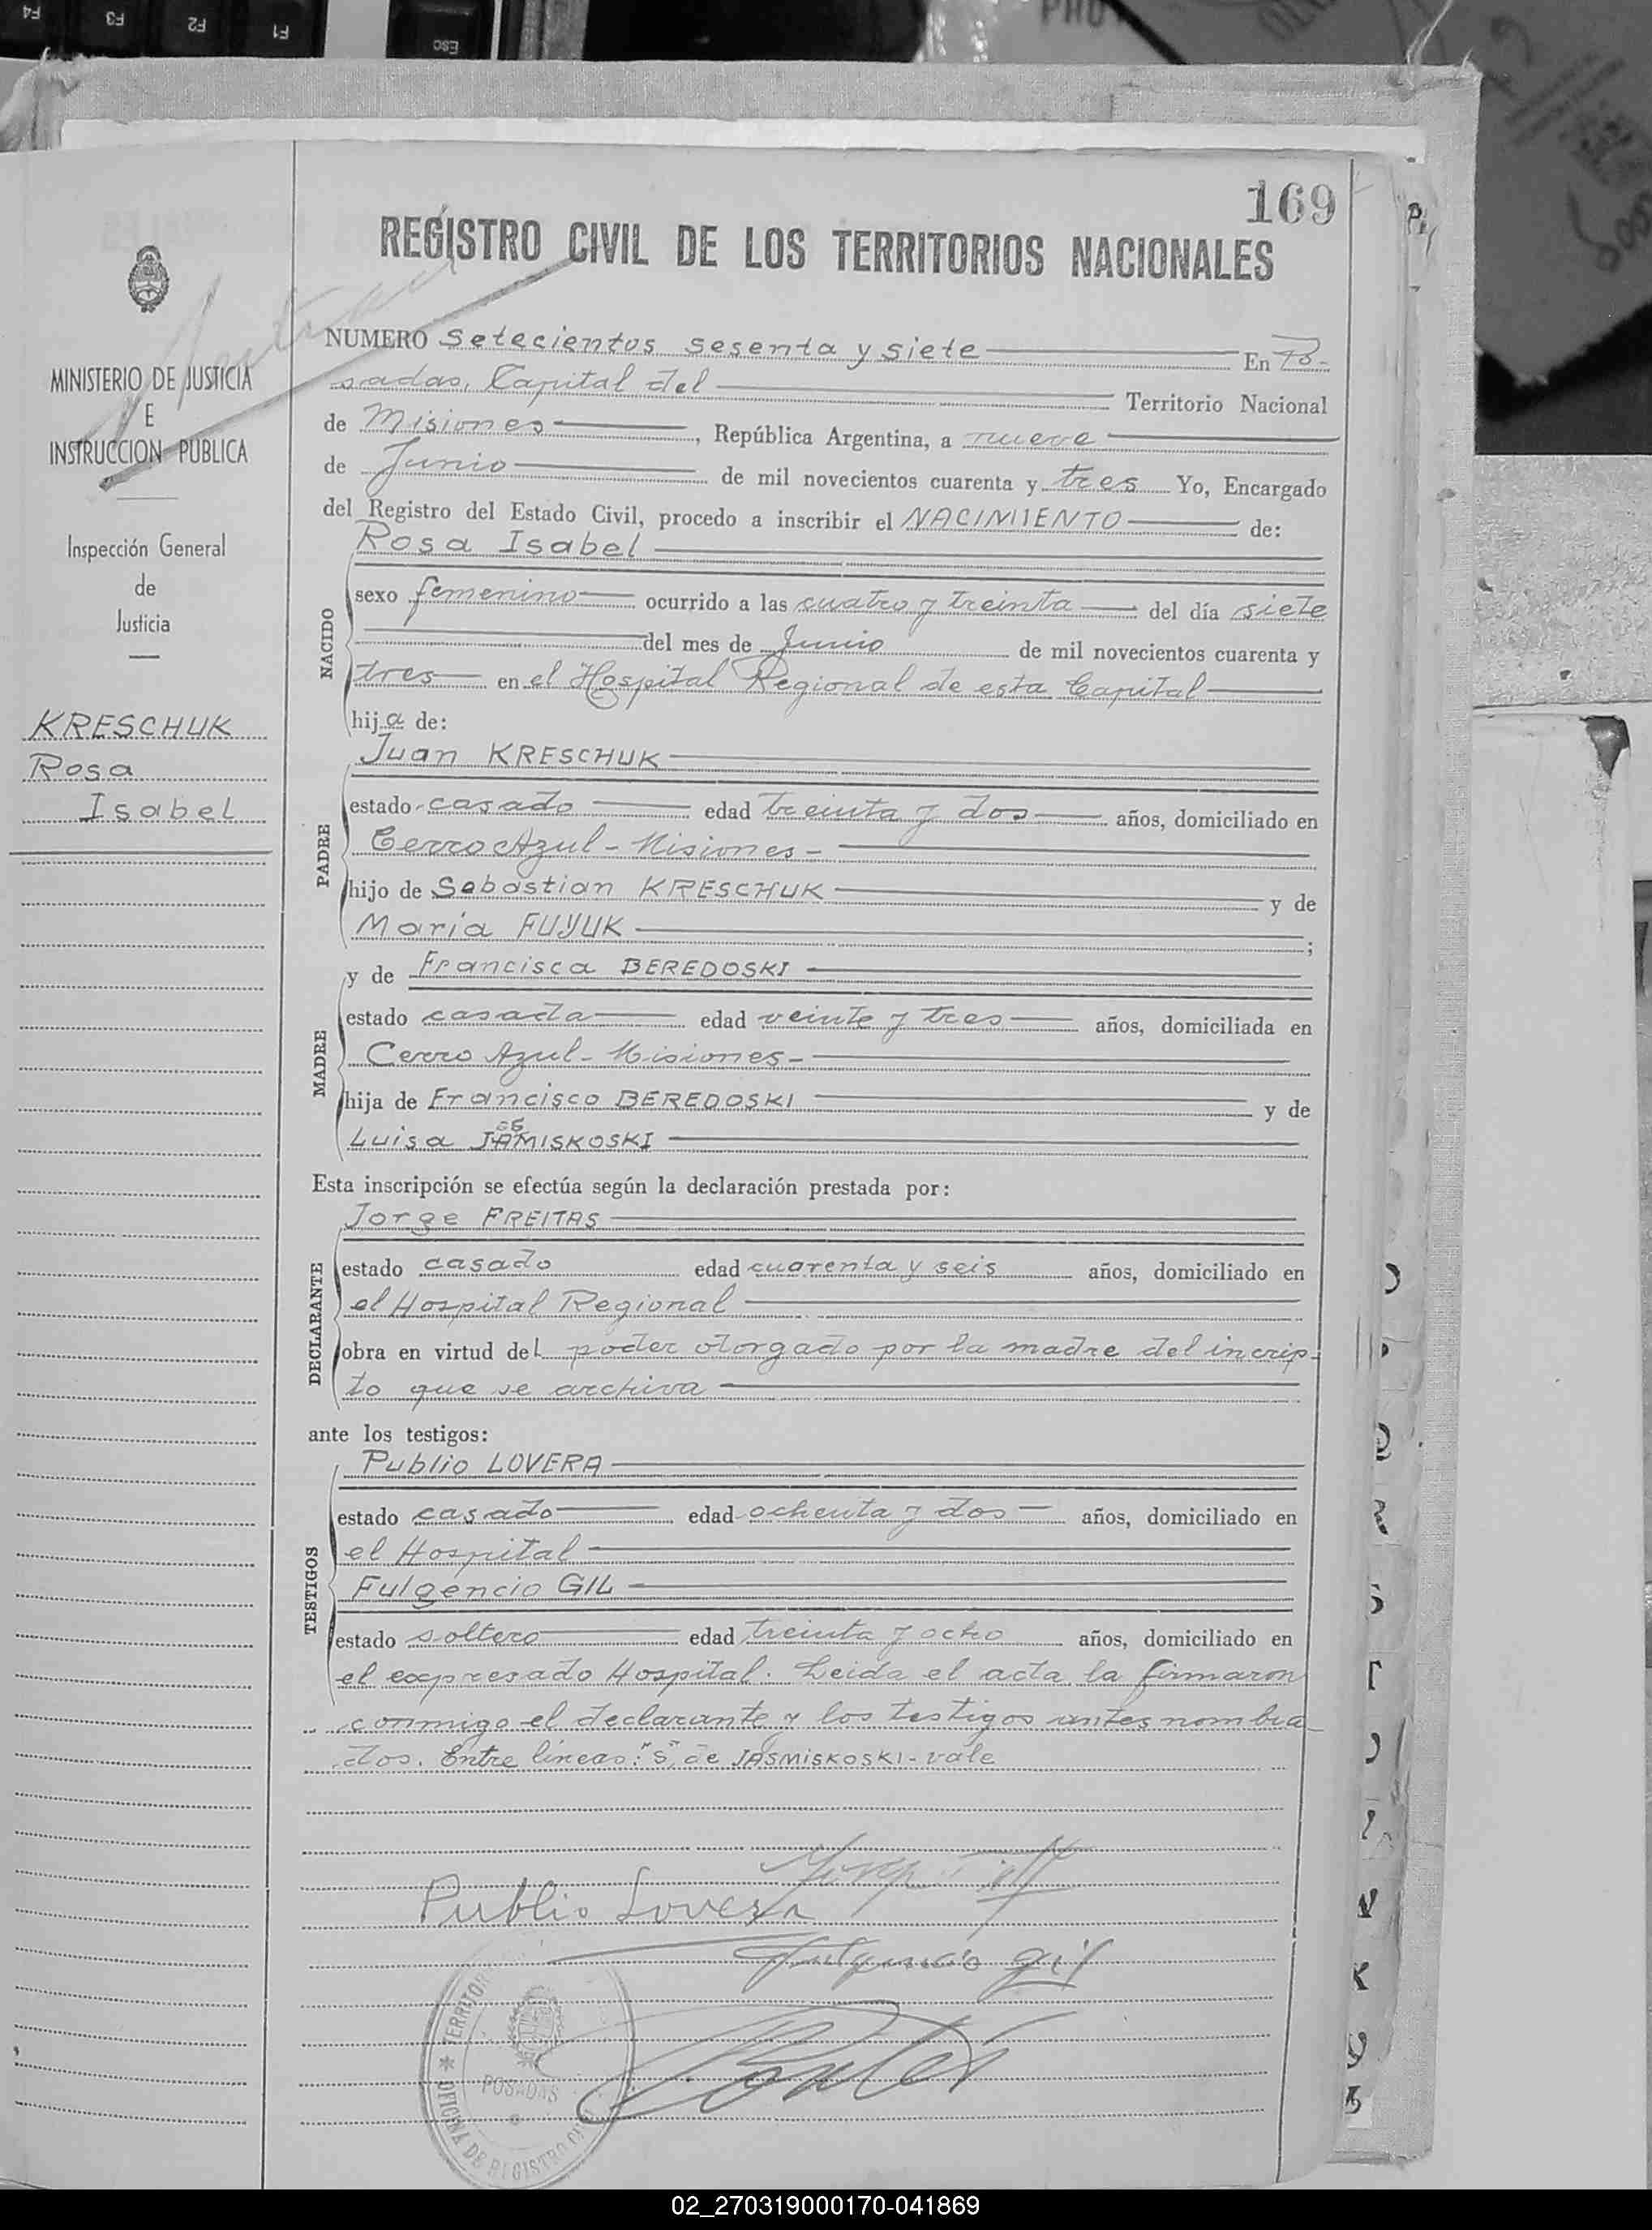 F4 F3 F2 F1 Esc
169
REGISTRO CIVIL DE LOS TERRITORIOS NACIONALES
MINISTERIO DE JUSTICIA
E
INSTRUCCION PUBLICA
Inspección General
de
Justicia
KRESCHUK
Rosa
Isabel
NUMERO Setecientos sesenta y siete En Po-
sadas, Capital del Territorio Nacional
de Misiones, República Argentina, a nueve
de Junio de mil novecientos cuarenta y tres Yo, Encargado
del Registro del Estado Civil, procedo a inscribir el NACIMIENTO de:
NACIDO
Rosa Isabel
sexo femenino ocurrido a las cuatro y treinta del día siete
del mes de Junio de mil novecientos cuarenta y
tres en el Hospital Regional de esta Capital
hija de:
PADRE
Juan KRESCHUK
estado casado edad treinta y dos años, domiciliado en
Cerro Azul - Misiones -
hijo de Sebastian KRESCHUK y de
María FUYUK ;
MADRE
y de Francisca BEREDOSKI
estado casada edad veinte y tres años, domiciliada en
Cerro Azul - Misiones -
hija de Francisco BEREDOSKI y de
Luisa JASMISKOSKI
Esta inscripción se efectúa según la declaración prestada por:
DECLARANTE
Jorge FREITAS
estado casado edad cuarenta y seis años, domiciliado en
el Hospital Regional
obra en virtud del poder otorgado por la madre del incrip-
to que se archiva
ante los testigos:
TESTIGOS
Publio LOVERA
estado casado edad ochenta y dos años, domiciliado en
el Hospital
Fulgencio GIL
estado soltero edad treinta y ocho años, domiciliado en
el expresado Hospital. Leida el acta la firmaron
conmigo el declarante y los testigos antes nombra-
dos. Entre líneas: "S" de JASMISKOSKI - vale
Publio Lovera
Fulgencio Gil
TERRITOR
POSADAS
OFICINA DE REGISTRO CIVIL
02_270319000170-041869